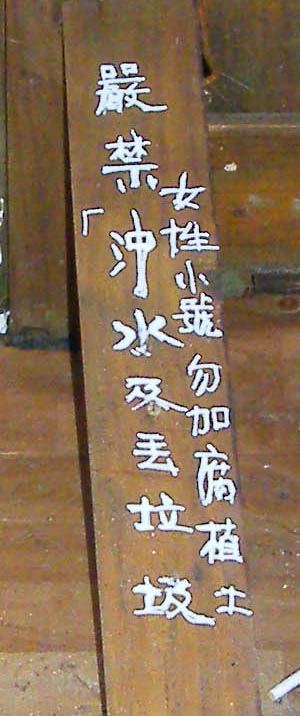 女性小號勿加腐植土
嚴禁「沖水及丟垃圾